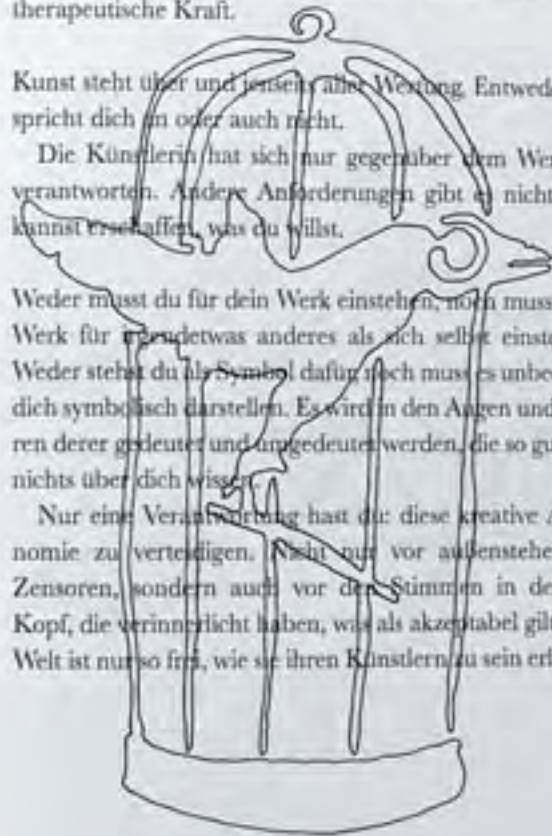 therapeutische Kraft.
Kunst steht über und jenseits aller Wertung. Entwed
spricht dich an oder auch nicht.
Die Künstlerin hat sich nur gegenüber dem Wer
verantworten. Andere Anforderungen gibt es nicht
kannst erschaffen, was du willst.
Weder musst du für dein Werk einstehen, noch muss
Werk für irgendetwas anderes als sich selbst einste
Weder stehst du als Symbol dafür, noch muss es unbe
dich symbolisch darstellen. Es wird in den Augen und
ren derer gedeutet und umgedeutet werden, die so gu
nichts über dich wissen.
Nur eine Verantwortung hast du: diese kreative A
nomie zu verteidigen. Nicht nur vor außenstehe
Zensoren, sondern auch vor den Stimmen in de
Kopf, die verinnerlicht haben, was als akzeptabel gilt
Welt ist nur so frei, wie sie ihren Künstlern zu sein erl